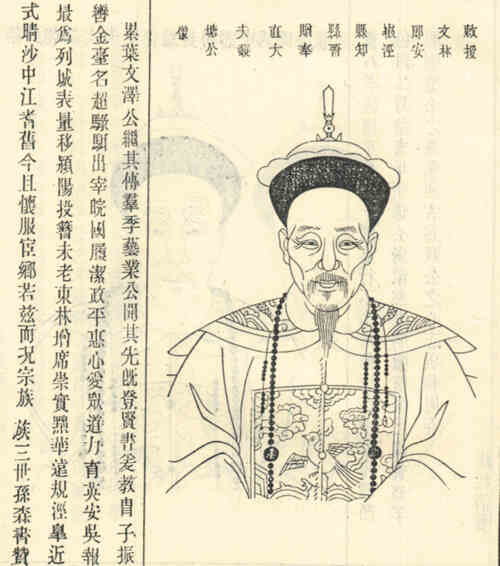 敕授
文林
郎安
徽涇
縣知
縣晉
贈奉
直大
夫
塘公
像
累葉文澤公繼其傳羣季藝業公開其先旣登賢書爰教胄子振
響金臺名超驥顯出宰皖國履潔政平惠心愛眾道力育英安吳報
最爲列城表量移潁陽投簪未老東林增席崇實黜華遠規涇皋近
式晴沙中江耆舊今且儀服宦鄉若茲而況宗族 族三世孫森書贊